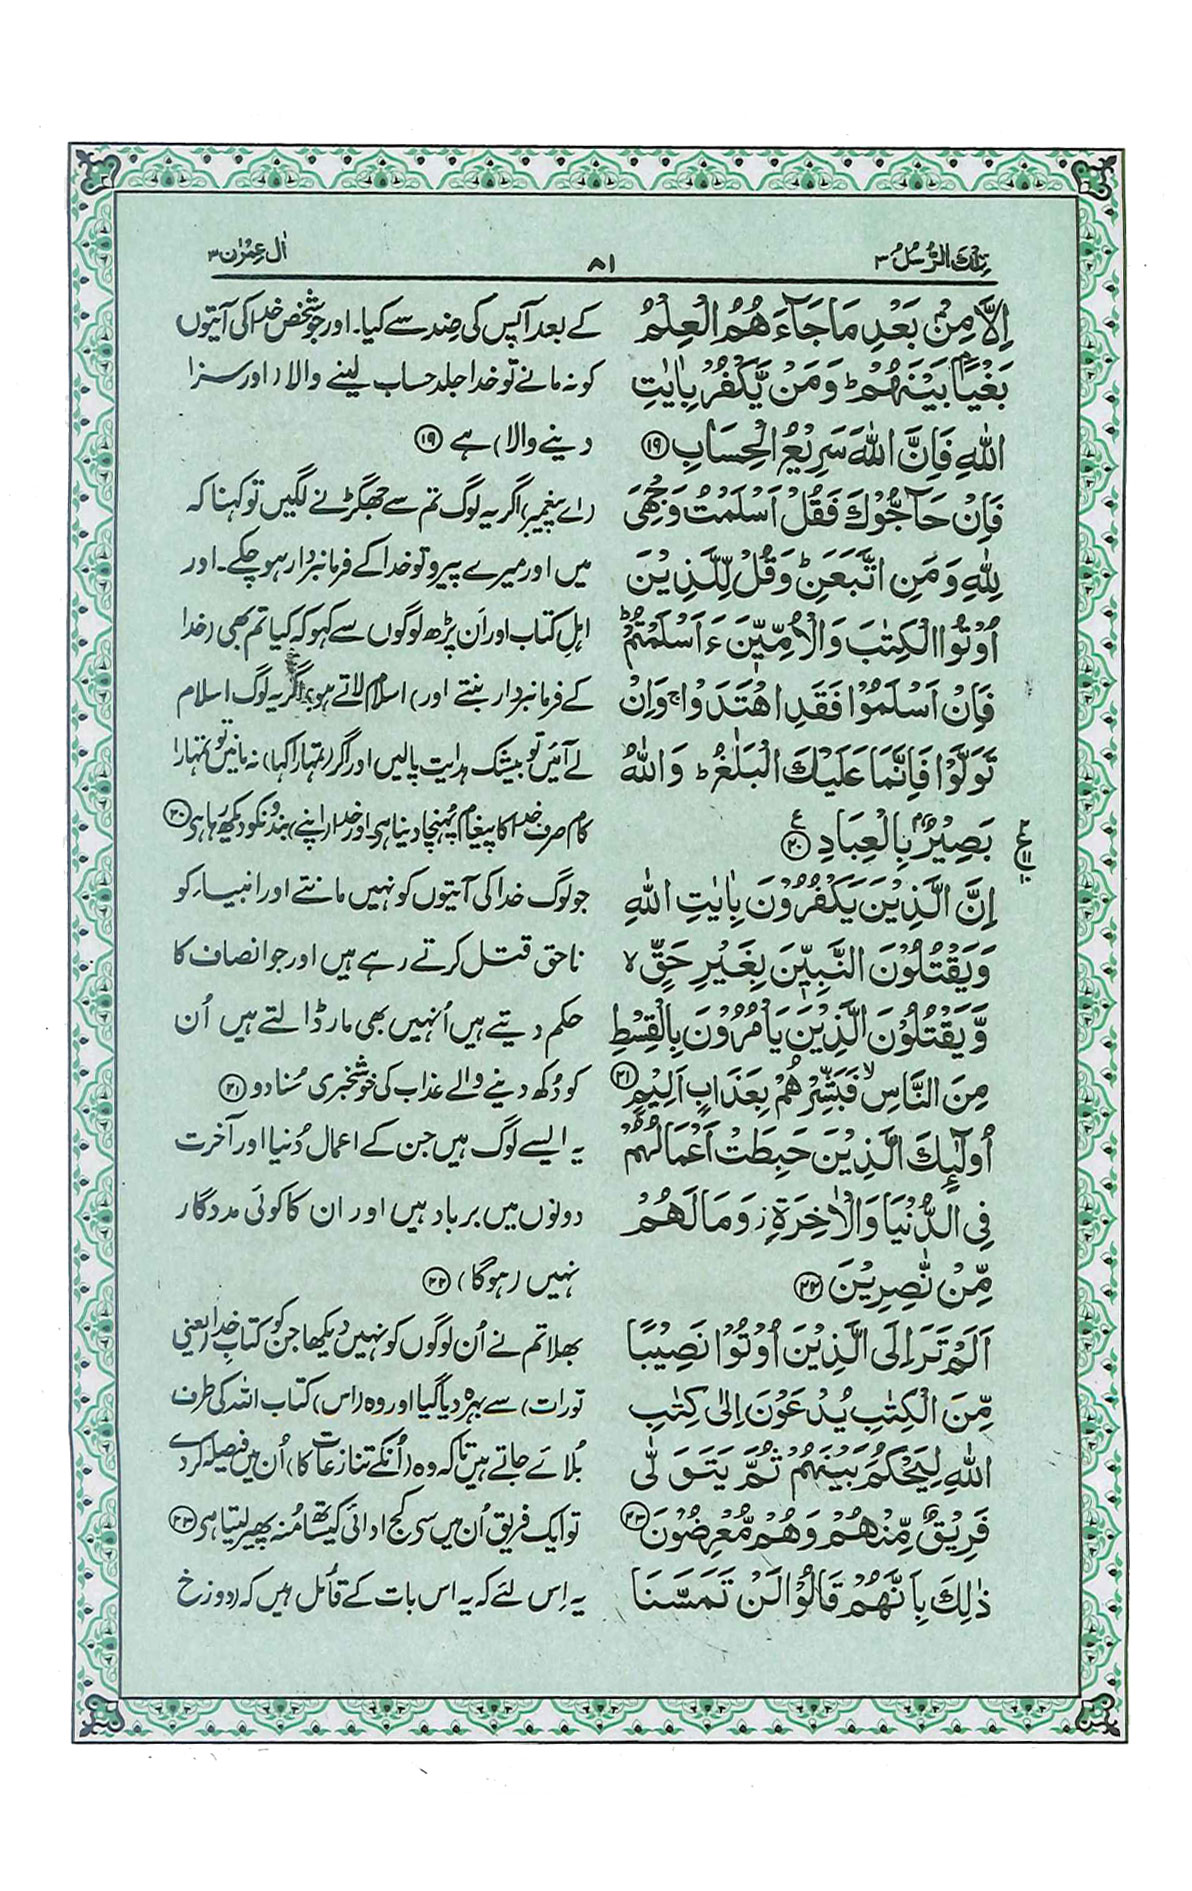 تِلْكَ الرُّسُلُ ٣
٨١
اٰل عِمْرٰن ٣
اِلَّا مِنْۢ بَعْدِ مَا جَآءَ هُمُ الْعِلْمُ
بَغْيًاۢ بَيْنَهُمْ ؕ وَمَنْ يَّكْفُرْ بِاٰيٰتِ
اللّٰهِ فَاِنَّ اللّٰهَ سَرِيْعُ الْحِسَابِ ﴿١٩﴾
فَاِنْ حَآجُّوْكَ فَقُلْ اَسْلَمْتُ وَجْهِىَ
لِلّٰهِ وَمَنِ اتَّبَعَنِ ؕ وَقُلْ لِّلَّذِيْنَ
اُوْتُوا الْكِتٰبَ وَالْاُمِّيّٖنَ ءَاَسْلَمْتُمْ ؕ
فَاِنْ اَسْلَمُوْا فَقَدِ اهْتَدَوْا ۚ وَاِنْ
تَوَلَّوْا فَاِنَّمَا عَلَيْكَ الْبَلٰغُ ؕ وَاللّٰهُ
بَصِيْرٌۢ بِالْعِبَادِ ﴿٢٠﴾ ع
اِنَّ الَّذِيْنَ يَكْفُرُوْنَ بِاٰيٰتِ اللّٰهِ
وَيَقْتُلُوْنَ النَّبِيّٖنَ بِغَيْرِ حَقٍّ ۙ
وَّيَقْتُلُوْنَ الَّذِيْنَ يَاْمُرُوْنَ بِالْقِسْطِ
مِنَ النَّاسِ ۙ فَبَشِّرْهُمْ بِعَذَابٍ اَلِيْمٍ ﴿٢١﴾
اُولٰٓئِكَ الَّذِيْنَ حَبِطَتْ اَعْمَالُهُمْ
فِى الدُّنْيَا وَالْاٰخِرَةِ ز وَمَا لَهُمْ
مِّنْ نّٰصِرِيْنَ ﴿٢٢﴾
اَلَمْ تَرَ اِلَى الَّذِيْنَ اُوْتُوْا نَصِيْبًا
مِّنَ الْكِتٰبِ يُدْعَوْنَ اِلٰى كِتٰبِ
اللّٰهِ لِيَحْكُمَ بَيْنَهُمْ ثُمَّ يَتَوَلّٰى
فَرِيْقٌ مِّنْهُمْ وَهُمْ مُّعْرِضُوْنَ ﴿٢٣﴾
ذٰلِكَ بِاَنَّهُمْ قَالُوْا لَنْ تَمَسَّنَا
کے بعد آپس کی ضد سے کیا۔ اور جو شخص خدا کی آیتوں
کو نہ مانے تو خدا جلد حساب لینے والا (اور سزا
دینے والا) ہے ﴿١٩﴾
(اے پیغمبر) اگر یہ لوگ تم سے جھگڑنے لگیں تو کہنا کہ
میں اور میرے پیرو تو خدا کے فرمانبردار ہو چکے۔ اور
اہلِ کتاب اور اَن پڑھ لوگوں سے کہو کہ کیا تم بھی (خدا
کے فرمانبردار بنتے اور) اسلام لاتے ہو؟ اگر یہ لوگ اسلام
لے آئیں تو بیشک ہدایت پالیں اور اگر (تمہارا کہا) نہ مانیں تو تمہارا
کام صرف خدا کا پیغام پُہنچا دینا ہی اور خدا (اپنے) بندونکو دیکھ رہا ہی ﴿٢٠﴾
جو لوگ خدا کی آیتوں کو نہیں مانتے اور انبیاء کو
ناحق قتل کرتے رہے ہیں اور جو انصاف کا
حکم دیتے ہیں اُنہیں بھی مار ڈالتے ہیں اُن
کو دُکھ دینے والے عذاب کی خوشخبری سُنا دو ﴿٢١﴾
یہ ایسے لوگ ہیں جن کے اعمال دُنیا اور آخرت
دونوں میں برباد ہیں اور ان کا کوئی مددگار
نہیں (ہوگا) ﴿٢٢﴾
بھلا تم نے اُن لوگوں کو نہیں دیکھا جن کو کتابِ خدا (یعنی
تورات) سے بہرہ دیا گیا اور وہ (اس) کتاب اللہ کی طرف
بُلائے جاتے ہیں تاکہ وہ (اُنکے تنازعات کا) اُن میں فیصلہ کر دے
تو ایک فریق اُن میں سی کج ادائی کیساتھ مُنہ پھیر لیتا ہی ﴿٢٣﴾
یہ اِس لئے کہ یہ اس بات کے قائل ہیں کہ (دوزخ